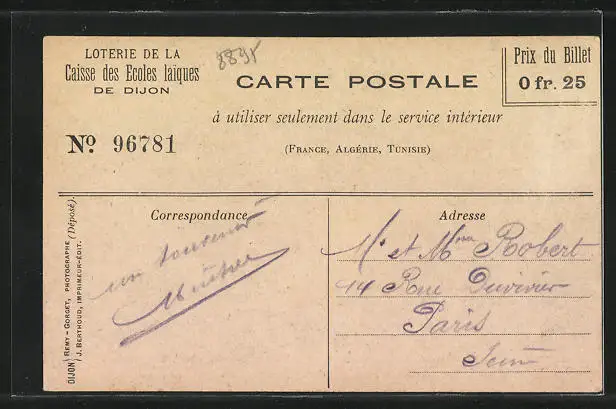 LOTERIE DE LA
Caisse des Ecoles laïques
DE DIJON
Nº 96781
8895
CARTE POSTALE
à utiliser seulement dans le service intérieur
(France, Algérie, Tunisie)
Prix du Billet
0 fr. 25
Correspondance
un souvenir
Adresse
Mr et Mme Robert
14 Rue Duvivier
Paris
Seine
DIJON
REMY - GORGET, PHOTOGRAPHE (Déposé).
J. BERTHOUD, IMPRIMEUR-ÉDIT.